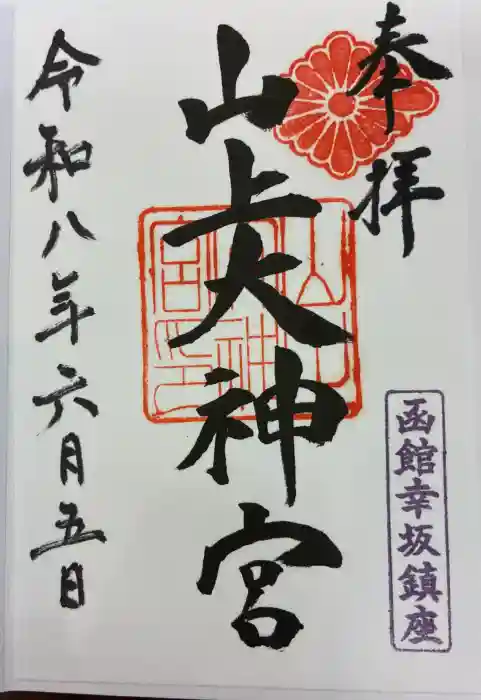 奉拝
函館幸坂鎮座
山上大神宮
令和八年六月五日